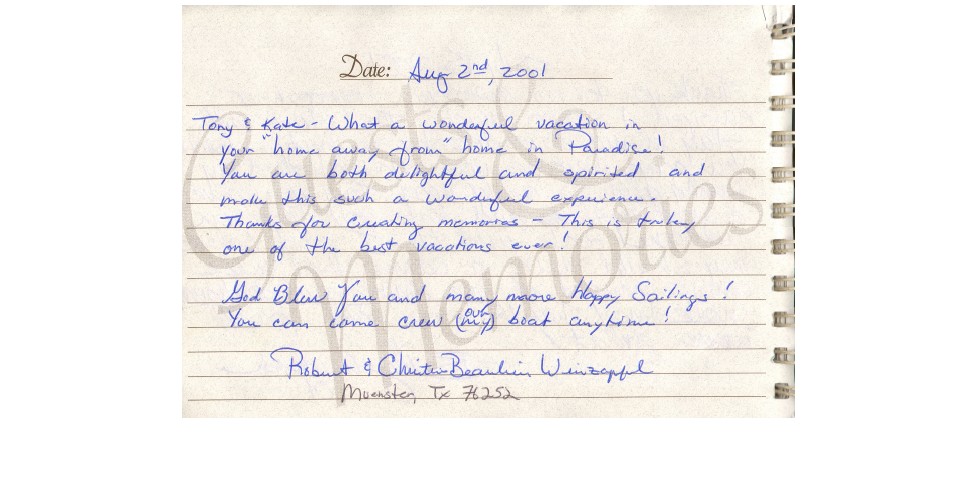 Date: Aug 2nd, 2001
Guests &
Memories
Tony & Kate - What a wonderful vacation in
your "home away from" home in Paradise!
You are both delightful and spirited and
make this such a wonderful experience.
Thanks for creating memories - This is truley
one of the best vacations ever!
God Bless You and many more Happy Sailings!
You can come crew (my) our boat anytime!
Robert & Beaulieu Winzapfel
Muenster, Tx 76252